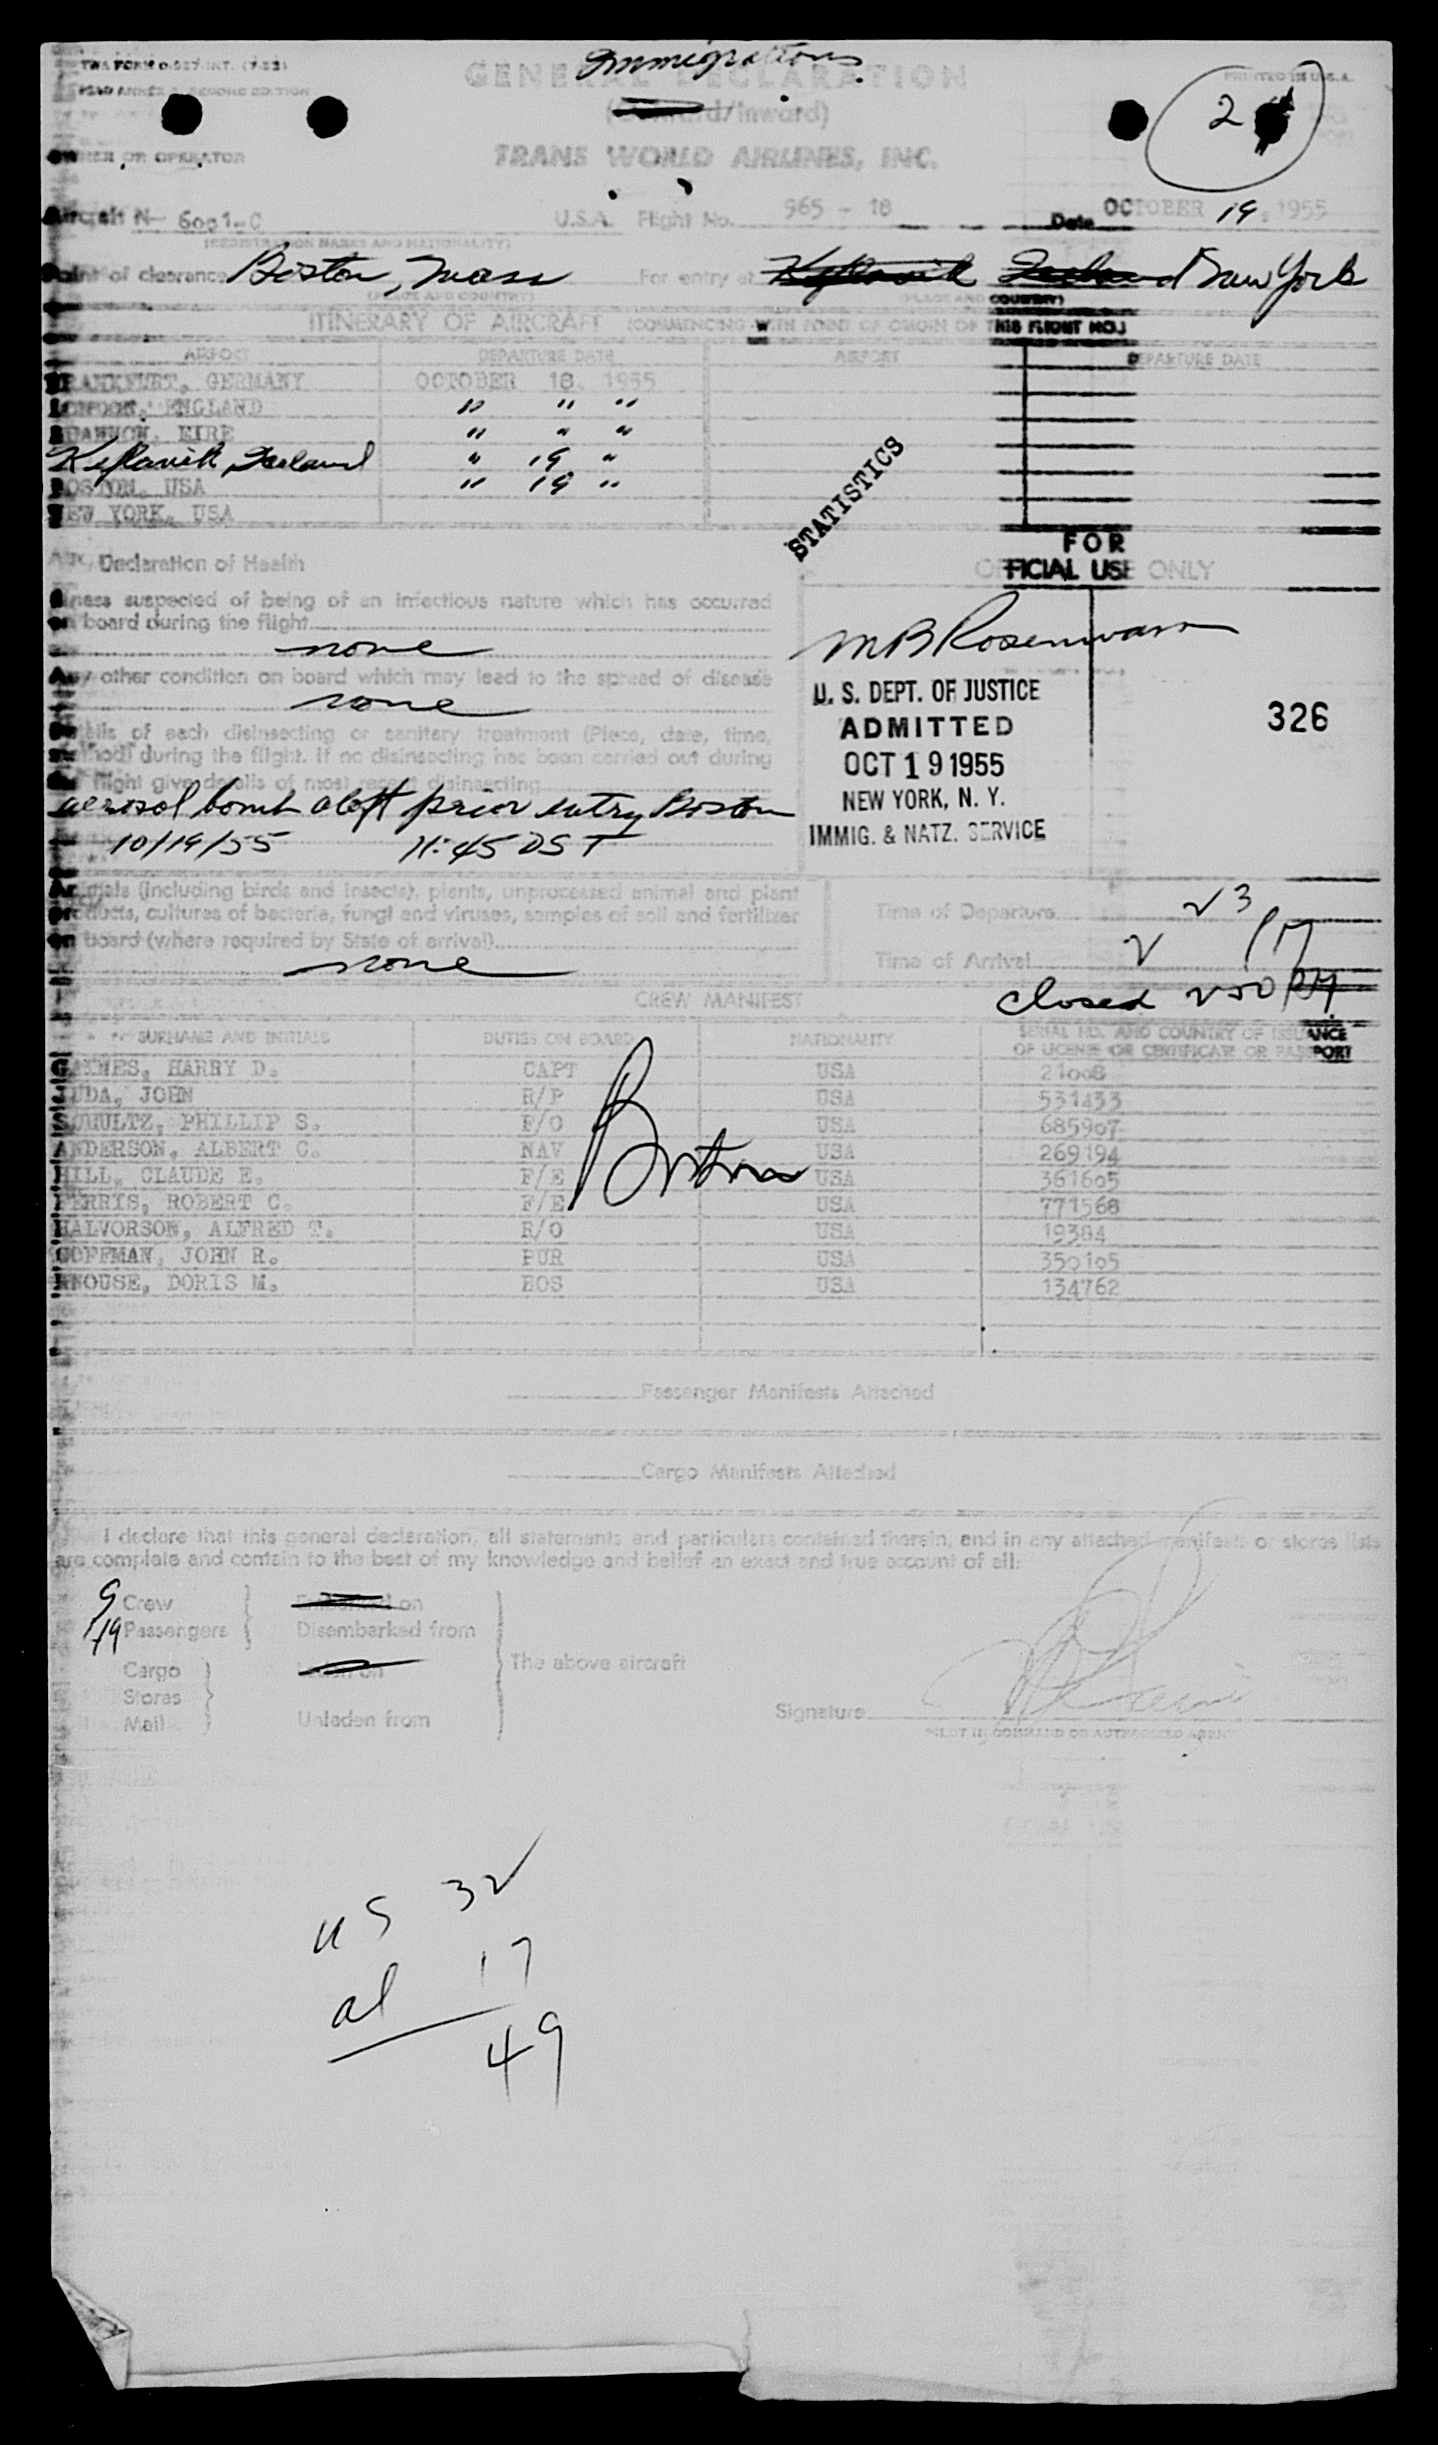 Immigrations
TWA FORM
PRINTED IN U.S.A.
GENERAL DECLARATION
(Outward/Inward)
2
OWNER OR OPERATOR
TRANS WORLD AIRLINES, INC.
Aircraft N- 6001-C U.S.A. Flight No. 965 - 18 Date OCTOBER 19, 1955
(REGISTRATION MARKS AND NATIONALITY)
Point of clearance Boston, Mass For entry at Keflavik Iceland New York
(PLACE AND COUNTRY) (PLACE AND COUNTRY)
ITINERARY OF AIRCRAFT (COMMENCING WITH POINT OF ORIGIN OF THIS FLIGHT NO.)
AIRPORT DEPARTURE DATE AIRPORT DEPARTURE DATE
FRANKFURT, GERMANY OCTOBER 18, 1955
LONDON, ENGLAND " " "
SHANNON, EIRE " " "
Keflavik, Iceland " 19 "
BOSTON, USA " 19 "
NEW YORK, USA
STATISTICS
Declaration of Health
FOR
OFFICIAL USE ONLY
Illness suspected of being of an infectious nature which has occurred
on board during the flight
none
Any other condition on board which may lead to the spread of disease
none
Details of each disinsecting or sanitary treatment (Place, date, time,
method) during the flight. If no disinsecting has been carried out during
the flight give details of most recent disinsecting
aerosol bomb aloft prior entry Boston
10/19/55 11:45 DST
U. S. DEPT. OF JUSTICE
ADMITTED
OCT 19 1955
NEW YORK, N. Y.
IMMIG. & NATZ. SERVICE
326
Animals (including birds and insects), plants, unprocessed animal and plant
products, cultures of bacteria, fungi and viruses, samples of soil and fertilizer
on board (where required by State of arrival)
none
Time of Departure 23
Time of Arrival 2 PM
closed 250 PM
CREW MANIFEST
SURNAME AND INITIALS DUTIES ON BOARD NATIONALITY SERIAL NO. AND COUNTRY OF ISSUANCE
OF LICENSE OR CERTIFICATE OR PASSPORT
GAINES, HARRY D. CAPT USA 21008
JUDA, JOHN R/P USA 531433
SCHULTZ, PHILLIP S. F/O USA 685907
ANDERSON, ALBERT C. NAV USA 269194
HILL, CLAUDE E. F/E USA 361605
FERRIS, ROBERT C. F/E USA 771568
HALVORSON, ALFRED T. R/O USA 19384
COFFMAN, JOHN R. PUR USA 350105
KNOUSE, DORIS M. HOS USA 134762
Boston
Passenger Manifests Attached
Cargo Manifests Attached
I declare that this general declaration, all statements and particulars contained therein, and in any attached manifests or stores lists
are complete and contain to the best of my knowledge and belief an exact and true account of all:
9 Crew Embarked on
49 Passengers Disembarked from
The above aircraft
Cargo Laden on
Stores
Mail Unladen from
Signature
PILOT IN COMMAND OR AUTHORIZED AGENT
US 32
al 17
49